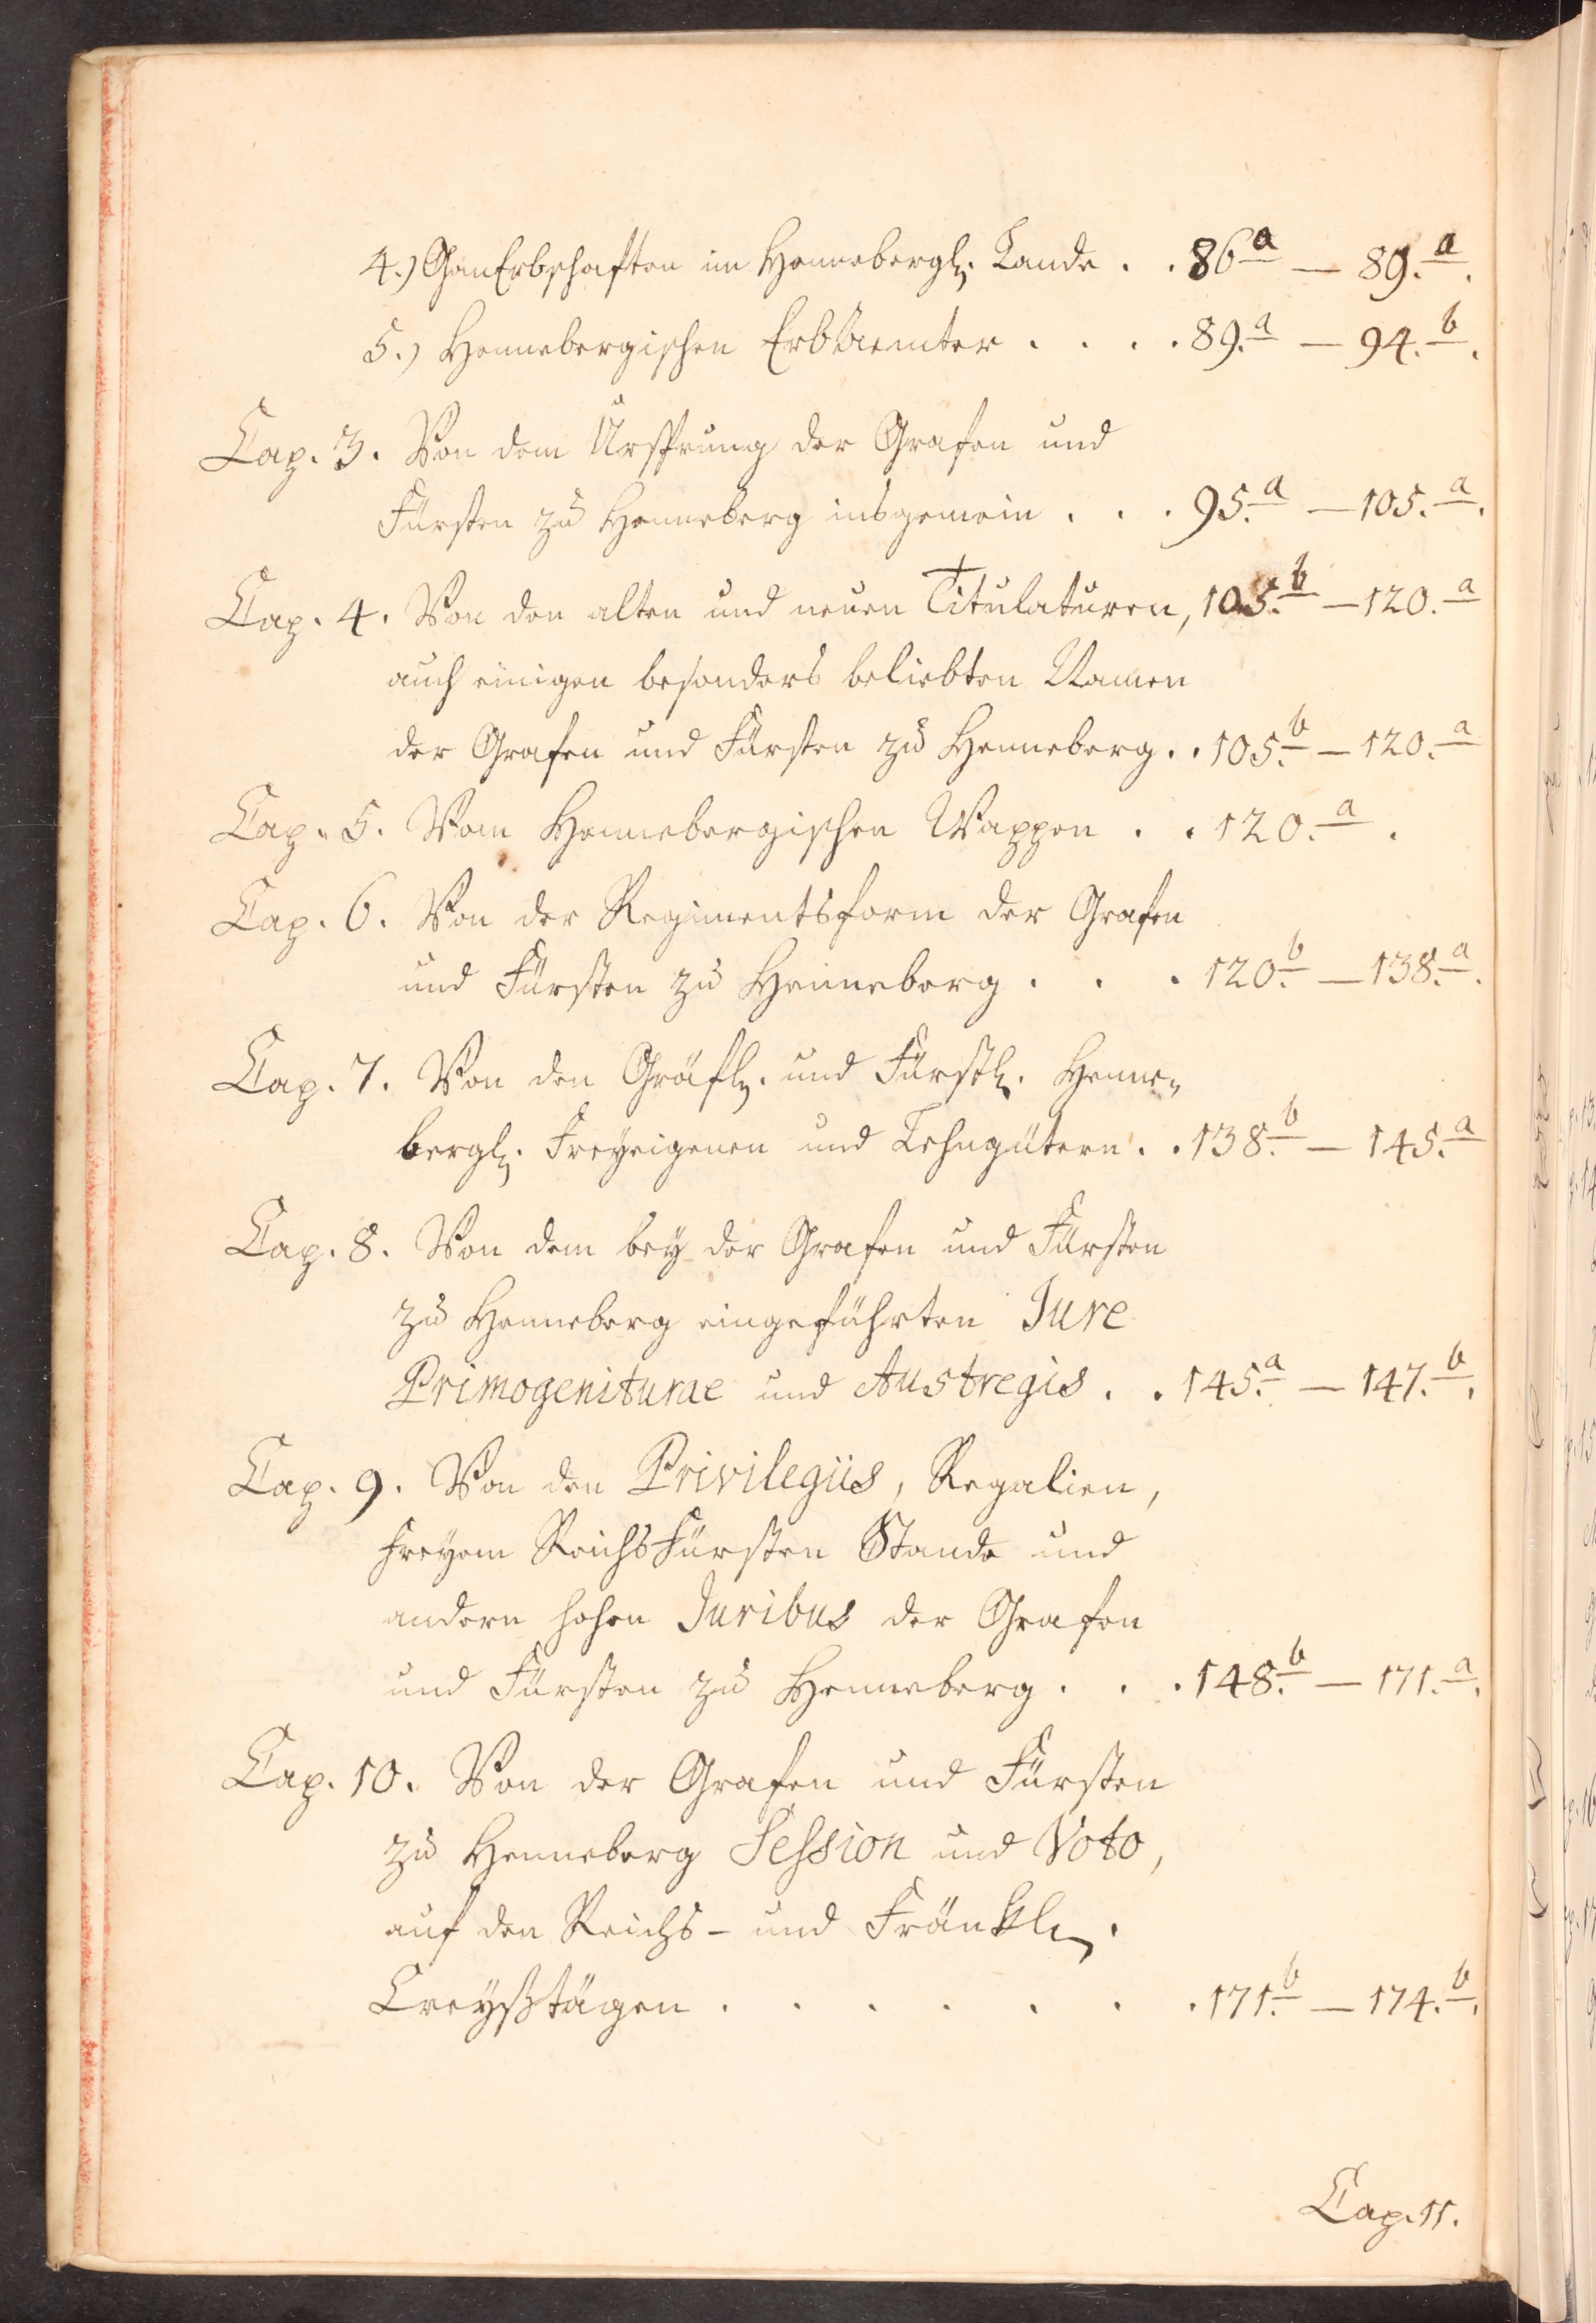 4.) GanErbschaften im Hennebergl. Lande . . 86.a — 89.a.
5.) Hennebergischen ErbAemter . . . . 89.a — 94.b.
Cap. 3. Von dem Ursprung der Grafen und
Fürsten zu Henneberg insgemein . . . 95.a — 105.a.
Cap. 4. Von den alten und neuen Titulaturen, 105.b — 120.a
auch einigen besonders beliebten Namen
der Grafen und Fürsten zu Henneberg . . 105.b — 120.a
Cap. 5. Vom Hennebergischen Wappen . . 120.a .
Cap. 6. Von der Regimentsform der Grafen
und Fürsten zu Henneberg . . . 120.b — 138.a.
Cap. 7. Von den Gräfl. und Fürstl. Henne-
bergl. Freyeigenen und Lehngütern . . 138.b — 145.a
Cap. 8. Von dem bey der Grafen und Fürsten
zu Henneberg eingeführten Jure
Primogeniturae und Austregis . . 145.a — 147.b.
Cap. 9. Von den Privilegiis, Regalien,
freyem ReichsFürsten Stande und
andern hohen Juribus der Grafen
und Fürsten zu Henneberg . . . 148.b — 171.a.
Cap. 10. Von der Grafen und Fürsten
zu Henneberg Session und Voto,
auf den Reichs- und Fränkl.
Creyßtägen . . . . . . . 171.b — 174.b.
Cap. 11.